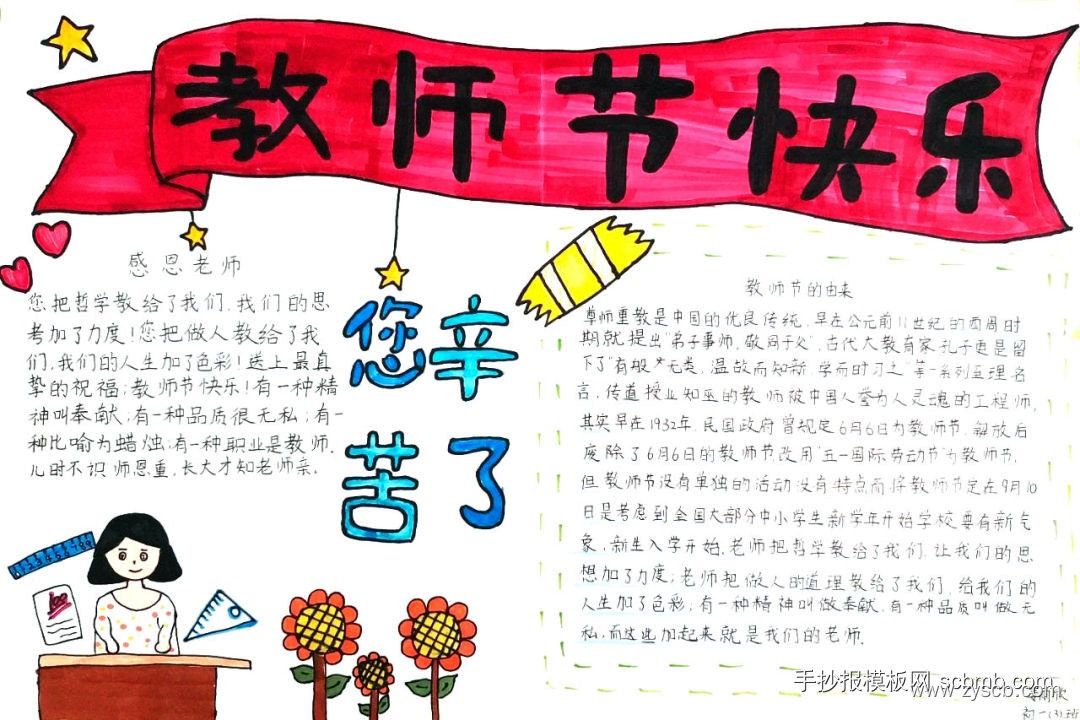 教师节快乐
感恩老师
您把哲学教给了我们,我们的思
考加了力度!您把做人教给了我
们,我们的人生加了色彩!送上最真
挚的祝福,教师节快乐!有一种精
神叫奉献;有一种品质很无私;有一
种比喻为蜡烛;有一种职业是教师.
儿时不识师恩重,长大才知老师亲.
您辛
苦了
教师节的由来
尊师重教是中国的优良传统,早在公元前11世纪的西周时
期就提出"弟子事师,敬同于父",古代大教育家孔子更是留
下了"有教无类,温故而知新,学而时习之"等一系列至理名
言,传道授业知巫的教师被中国人誉为人灵魂的工程师,
其实早在1932年,民国政府曾规定6月6日为教师节,解放后
废除了6月6日的教师节改用"五一国际劳动节"为教师节,
但教师节没有单独的活动没有特点而将教师节定在9月10
日是考虑到全国大部分中小学生新学年开始学校要有新气
象,新生入学开始,老师把哲学教给了我们,让我们的思
想加了力度;老师把做人的道理教给了我们,给我们的
人生加了色彩;有一种精神叫做奉献,有一种品质叫做无
私,而这些加起来就是我们的老师.
100
手抄报模板网 scbmb.com
www.zyscb.com
初一(3)班